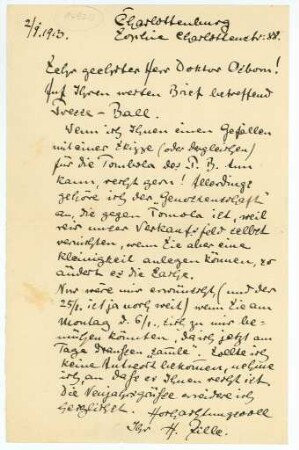 2/I. 1913.
Charlottenburg
Sophie Charlottenstr. 88.
Sehr geehrter Herr Doktor Osborn!
Auf Ihren werten Brief betreffend
Presse-Ball.
Wenn ich Ihnen einen Gefallen
mit einer Skizze (oder dergleichen)
für die Tombola des P. B. tun
kann, recht gern! Allerdings
gehöre ich der „Genossenschaft“
an, die gegen Tombola ist, weil
wir unser Verkaufsfeld selbst
vernichten, wenn Sie aber eine
Kleinigkeit anlegen können, so
ändert es die Sache.
Nur wäre mir erwünscht (und der
25/I. ist ja noch weit) wenn Sie am
Montag d. 6/I. sich zu mir be-
mühen könnten, da ich jetzt am
Tage draussen
Sollte ich
keine Antwort bekommen, nehme
ich an, dass es Ihnen recht ist
die Neujahrsgrüsse erwidre ich
herzlichst. Hochachtungsvoll
Ihr H. Zille.